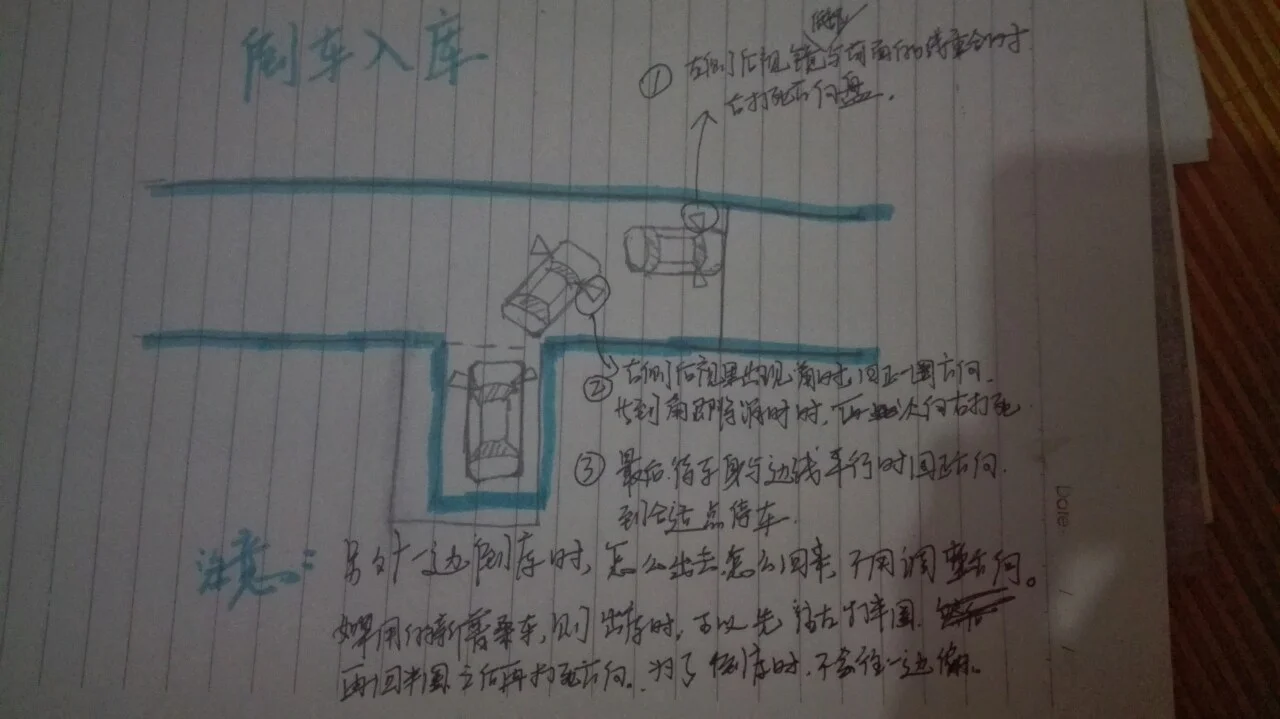 倒车入库
底部
① 左侧后视镜与前面的线重合时
右打死方向盘.
② 右侧后视里出现角时,回正一圈方向.
找到角即将消时时,再次向右打死.
③ 最后.待车身与边线平行时回正方向.
到合适点停车.
注意:
另外一边倒库时,怎么出去,怎么回来,不用调整方向。
如果用的新普桑车,则出库时,可以先往右打半圈.
再回半圈之后再打死方向。为了倒库时.不会往一边偏.
Date / /